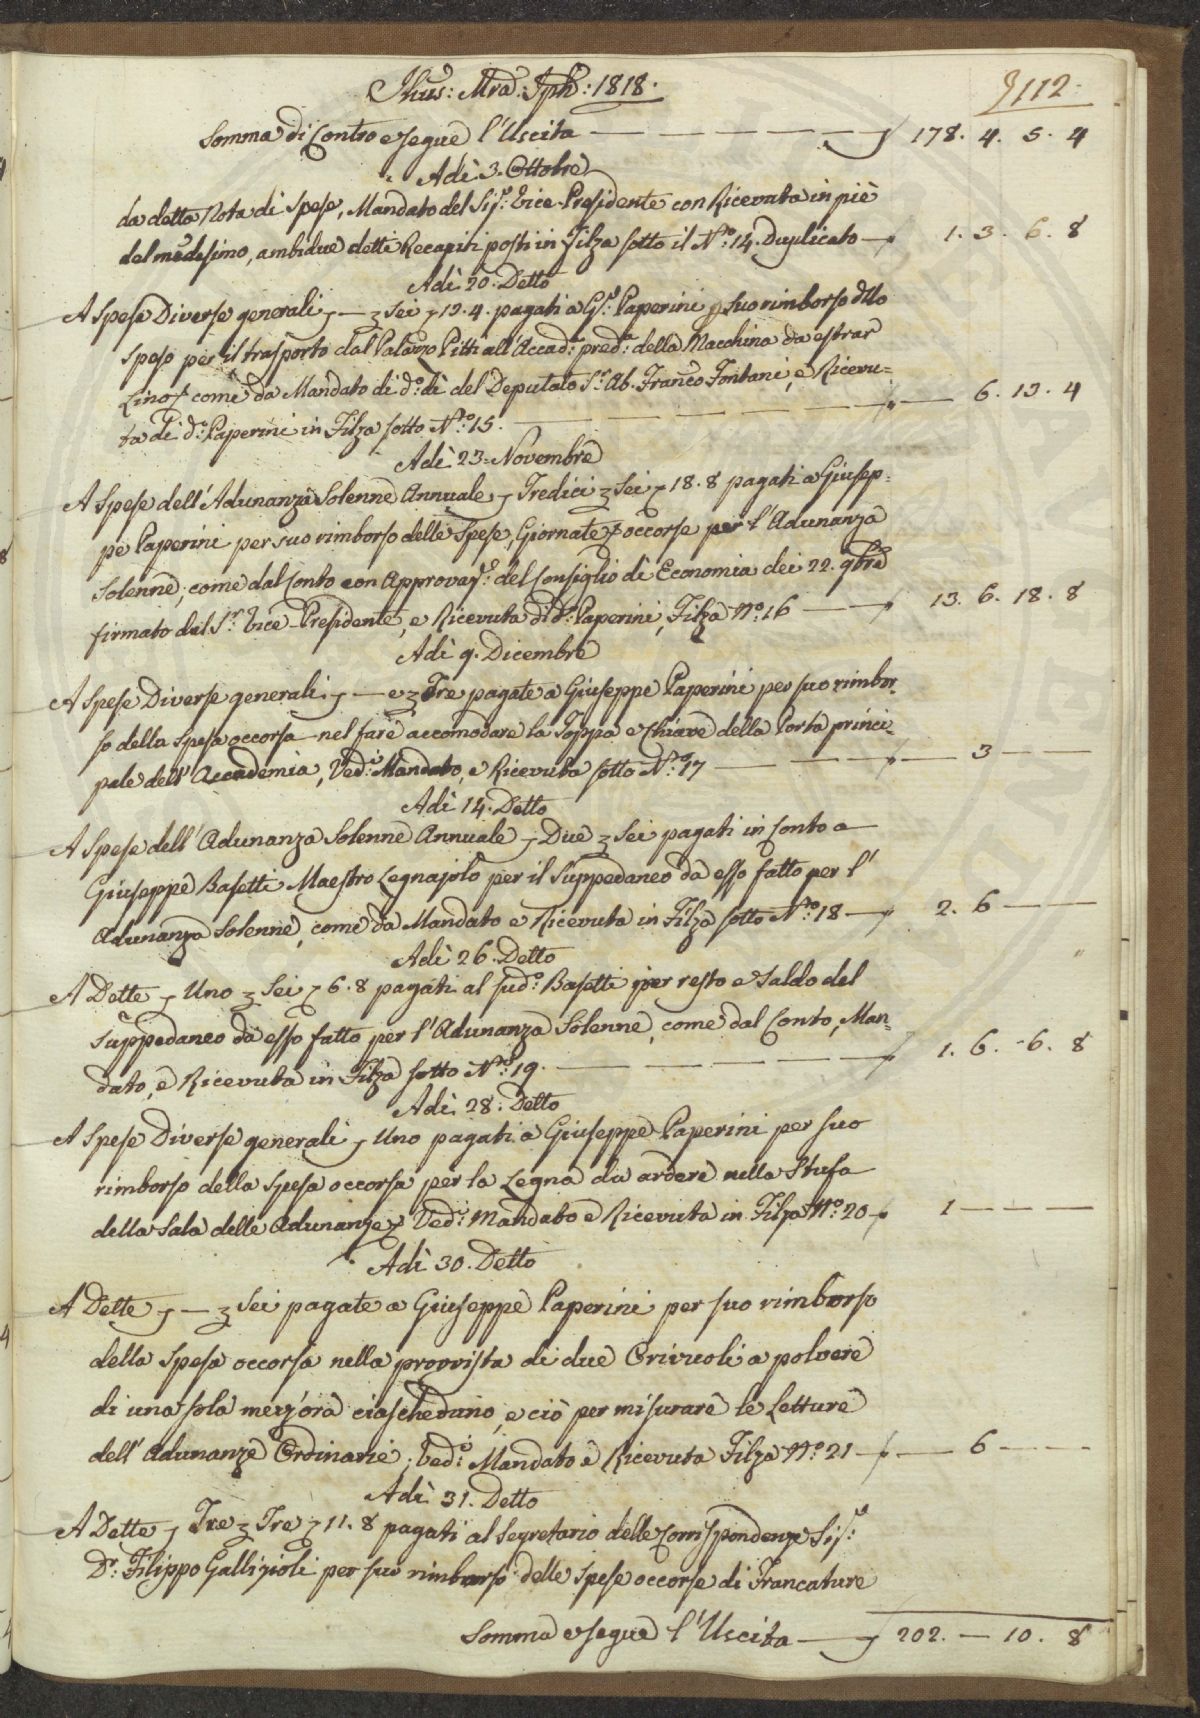 Jhus: Mra: Jph: 1818.
112.
Somma di Contro e segue l'Uscita 178. 4. 5. 4
Adì 3. Ottobre
da detta Nota di Spese, Mandato del Sig.r Vice-Presidente con Ricevuta in piè
del medesimo, ambidue detti Recapiti posti in Filza sotto il N.o 14. Duplicato 1. 3. 6. 8
Adì 20. Detto
A Spese Diverse generali, — Sei 13.4. pagati a G.e Paperini p suo rimborso dllo
speso per il trasporto dal Palazzo Pitti all'Accad.a pred.a della Macchina da estrar
Lino, come da Mandato di d.o dì del Deputato S.r Ab. Franco Fontani, e Ricevu=
ta di d.o Paperini in Filza sotto N.o 15. 6. 13. 4
Adì 23 Novembre
A Spese dell'Adunanza Solenne Annuale, Tredici Sei 18.8 pagati a Giusep=
pe Paperini per suo rimborso delle Spese, Giornate occorse per l'Adunanza
Solenne; come dal Conto con Approvaz.e del Consiglio di Economia dei 22. 9bre
firmato dal S.r Vice-Presidente, e Ricevuta di d.o Paperini, Filza N.o 16 13. 6. 18. 8
Adì 9. Dicembre
A Spese Diverse generali, — e Tre pagate a Giuseppe Paperini per suo rimbor-
so della Spesa occorsa nel fare accomodare la Toppa e Chiave della Porta princi-
pale dell'Accademia, Ved.i Mandato, e Ricevuta sotto N.o 17 3
Adì 14. Detto
A Spese dell'Adunanza Solenne Annuale, Due Sei pagati in Conto a
Giuseppe Basetti Maestro Legnajolo per il Suppedaneo da esso fatto per l'
Adunanza Solenne, come da Mandato e Ricevuta in Filza sotto N.o 18 2. 6
Adì 26. Detto
A Dette, Uno Sei 6.8 pagati al sud.o Basetti per resto e Saldo del
Suppedaneo da esso fatto per l'Adunanza Solenne, come dal Conto, Man=
dato, e Ricevuta in Filza sotto N.o 19. 1. 6. 6. 8
Adì 28. Detto
A Spese Diverse generali, Uno pagati a Giuseppe Paperini per suo
rimborso della Spesa occorsa per la Legna da ardere nella Stufa
della Sala delle Adunanze, Ved.i Mandato e Ricevuta in Filza N.o 20 1
Adì 30. Detto
A Dette, — Sei pagate a Giuseppe Paperini per suo rimborso
della Spesa occorsa nella provvista di due Orivuoli a polvere
di una sola mezz'ora ciaschedano, e ciò per misurare le Letture
dell'Adunanze Ordinarie; Ved.i Mandato e Ricevuta Filza N.o 21 6
Adì 31. Detto
A Dette, Tre Tre 11.8 pagati al Segretario delle Corrispondenze Sig.r
D.r Filippo Gallizioli per suo rimborso delle Spese occorse di Francature
Somma e segue l'Uscita 202. — 10. 8